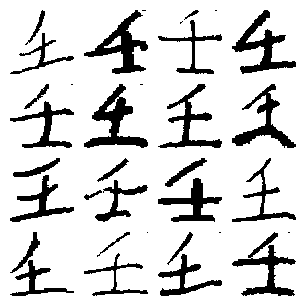 壬壬壬壬
壬壬壬壬
壬壬壬壬
壬壬壬壬